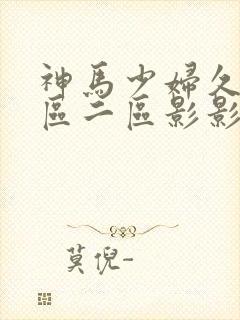 神馬少婦久
區二區影影
莫倪-